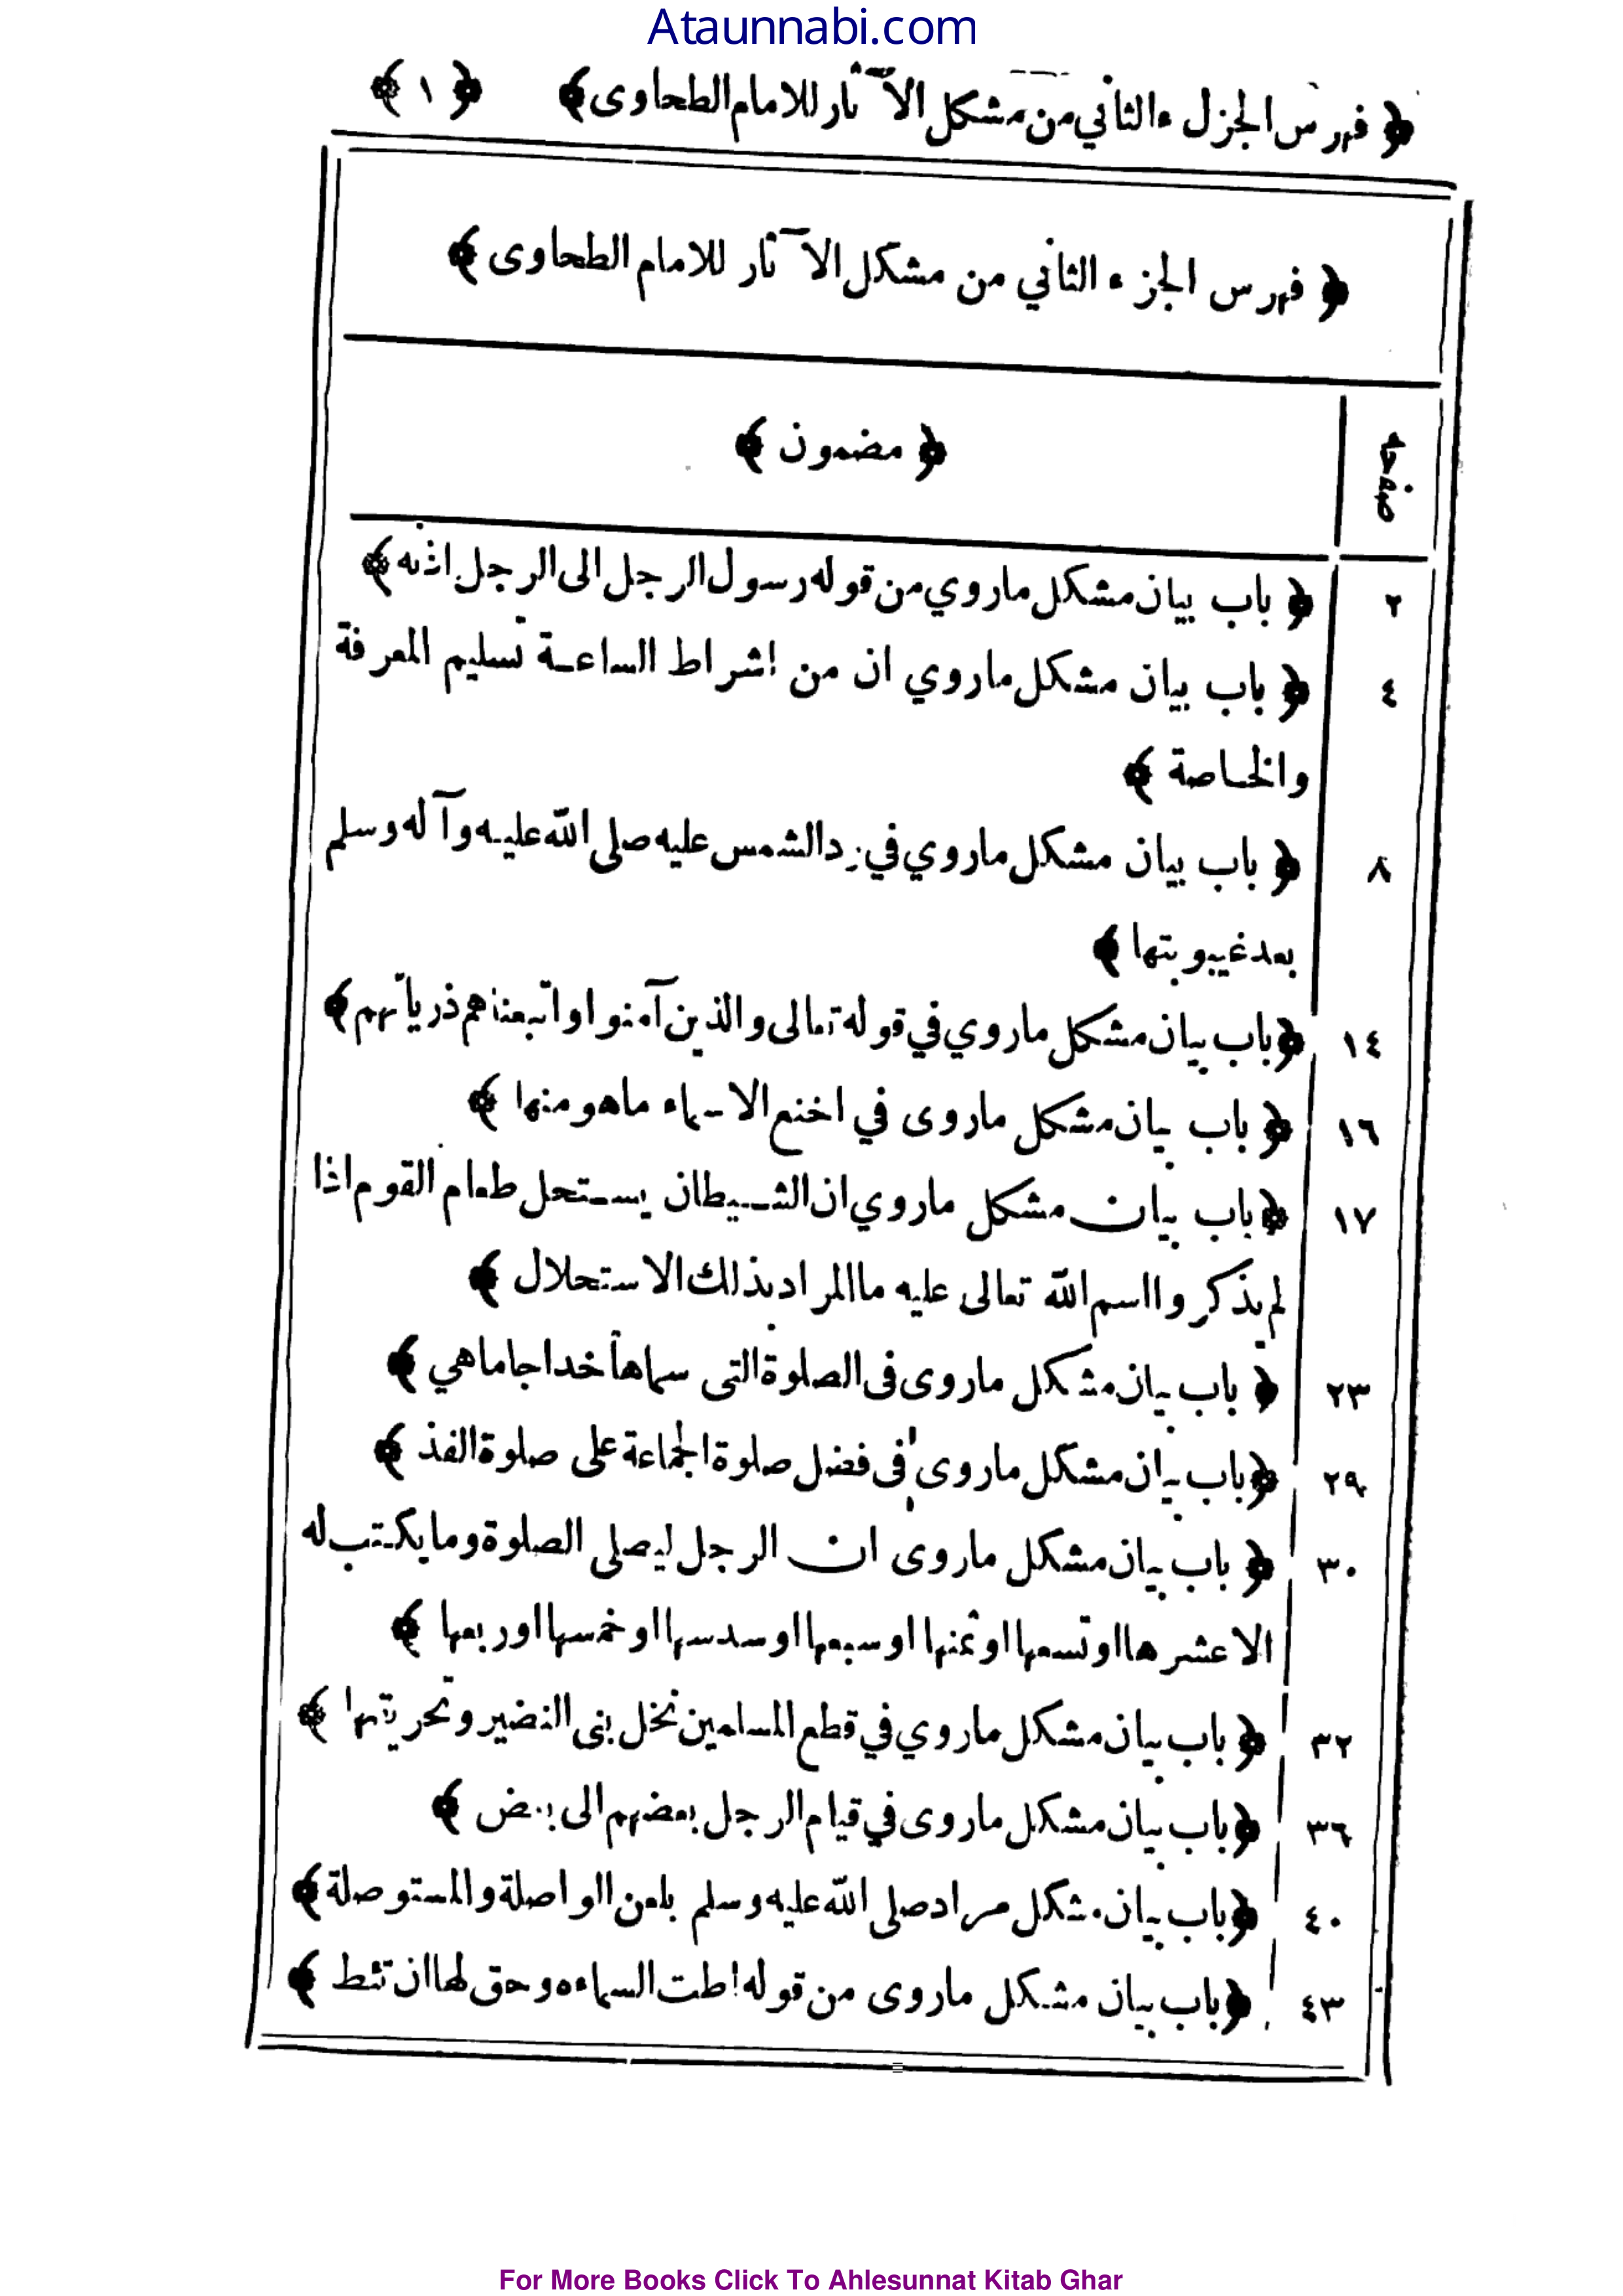 Ataunnabi.com
﴿ فهرس الجزء الثاني من مشكل الآثار للامام الطحاوى ﴾ ﴿ ١ ﴾
﴿ فهرس الجزء الثاني من مشكل الآثار للامام الطحاوى ﴾
صفحه ﴿ مضمون ﴾
٢ ﴿ باب بيان مشكل ماروي من قوله رسول الرجل الى الرجل اذنه ﴾
٤ ﴿ باب بيان مشكل ماروي ان من اشراط الساعة تسليم المعرفة
والخاصة ﴾
٨ ﴿ باب بيان مشكل ماروي في رد الشمس عليه صلى الله عليه وآله وسلم
بعد غيبوبتها ﴾
١٤ ﴿ باب بيان مشكل ماروي في قوله تعالى والذين آمنوا واتبعناهم ذرياتهم ﴾
١٦ ﴿ باب بيان مشكل ماروى في اخنع الاسماء ماهو منها ﴾
١٧ ﴿ باب بيان مشكل ماروي ان الشيطان يستحل طعام القوم اذا
لم يذكروا اسم الله تعالى عليه ما المراد بذلك الاستحلال ﴾
٢٣ ﴿ باب بيان مشكل ماروى فى الصلوة التى سماها خداجا ماهي ﴾
٢٩ ﴿ باب بيان مشكل ماروى فى فضل صلوة الجماعة على صلوة الفذ ﴾
٣٠ ﴿ باب بيان مشكل ماروى ان الرجل ليصلى الصلوة وما يكتب له
الا عشرها او تسعها او ثمنها او سبعها او سدسها او خمسها او ربعها ﴾
٣٢ ﴿ باب بيان مشكل ماروي في قطع المسلمين نخل بنى النضير وتحريقها ﴾
٣٦ ﴿ باب بيان مشكل ماروى في قيام الرجل بعضهم الى بعض ﴾
٤٠ ﴿ باب بيان مشكل مراد صلى الله عليه وسلم بلعن الواصلة والمستوصلة ﴾
٤٣ ﴿ باب بيان مشكل ماروى من قوله اطت السماء وحق لها ان تئط ﴾
For More Books Click To Ahlesunnat Kitab Ghar